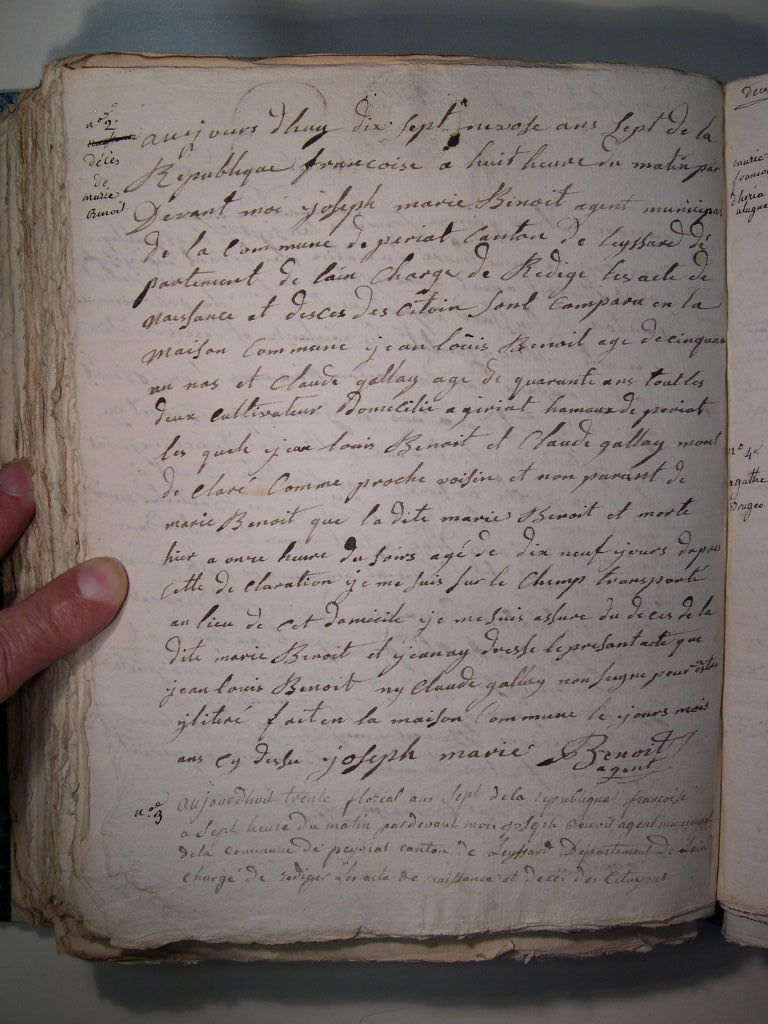 n° 2
décès
de
marie
Benoit
aujours dhuy dix sept nivose ans sept de la
Republique francoise a huit heure du matin par
Devant moi joseph marie Benoit agent municipal
de la commune de periat canton de Leyssard dé
partement de lain Charge de Redige les acte de
naissance et desces des citoin sont comparu en la
maison commune jean loüis Benoit age de cinquan
an nas et Claude gallay age de quarante ans tout les
deux cultivateur Domicilie a giriat hamaux de periat
les quels jean louis Benoit et Claude gallay mont
de claré comme proche voisin et non parant de
marie Benoit que la dite marie Benoit et morte
hier a onze heure du soirs agé de dix neuf jours dapres
cette de claration je me suis sur le champ transporté
au lieu de cet domicile je me suis assure du deces de la
dite marie Benoit et jeanay dresse le presant acte que
jean louis Benoit ny Claude gallay non signe pour estre
yliteré fait en la maison commune le jours mois
ans cy dessu joseph marie Benoit
agent
n° 3
aujourdhuit trente floreal ans sept dela republique francoise
a sept heure du matin pardevant mois joseph Benoit agent municipal
dela commune de peyriat canton de Leyssard Departement de Lain
chargé de rediger Les acte de naissance et decés des Citoyens
deces
marie
n° 4
agathe